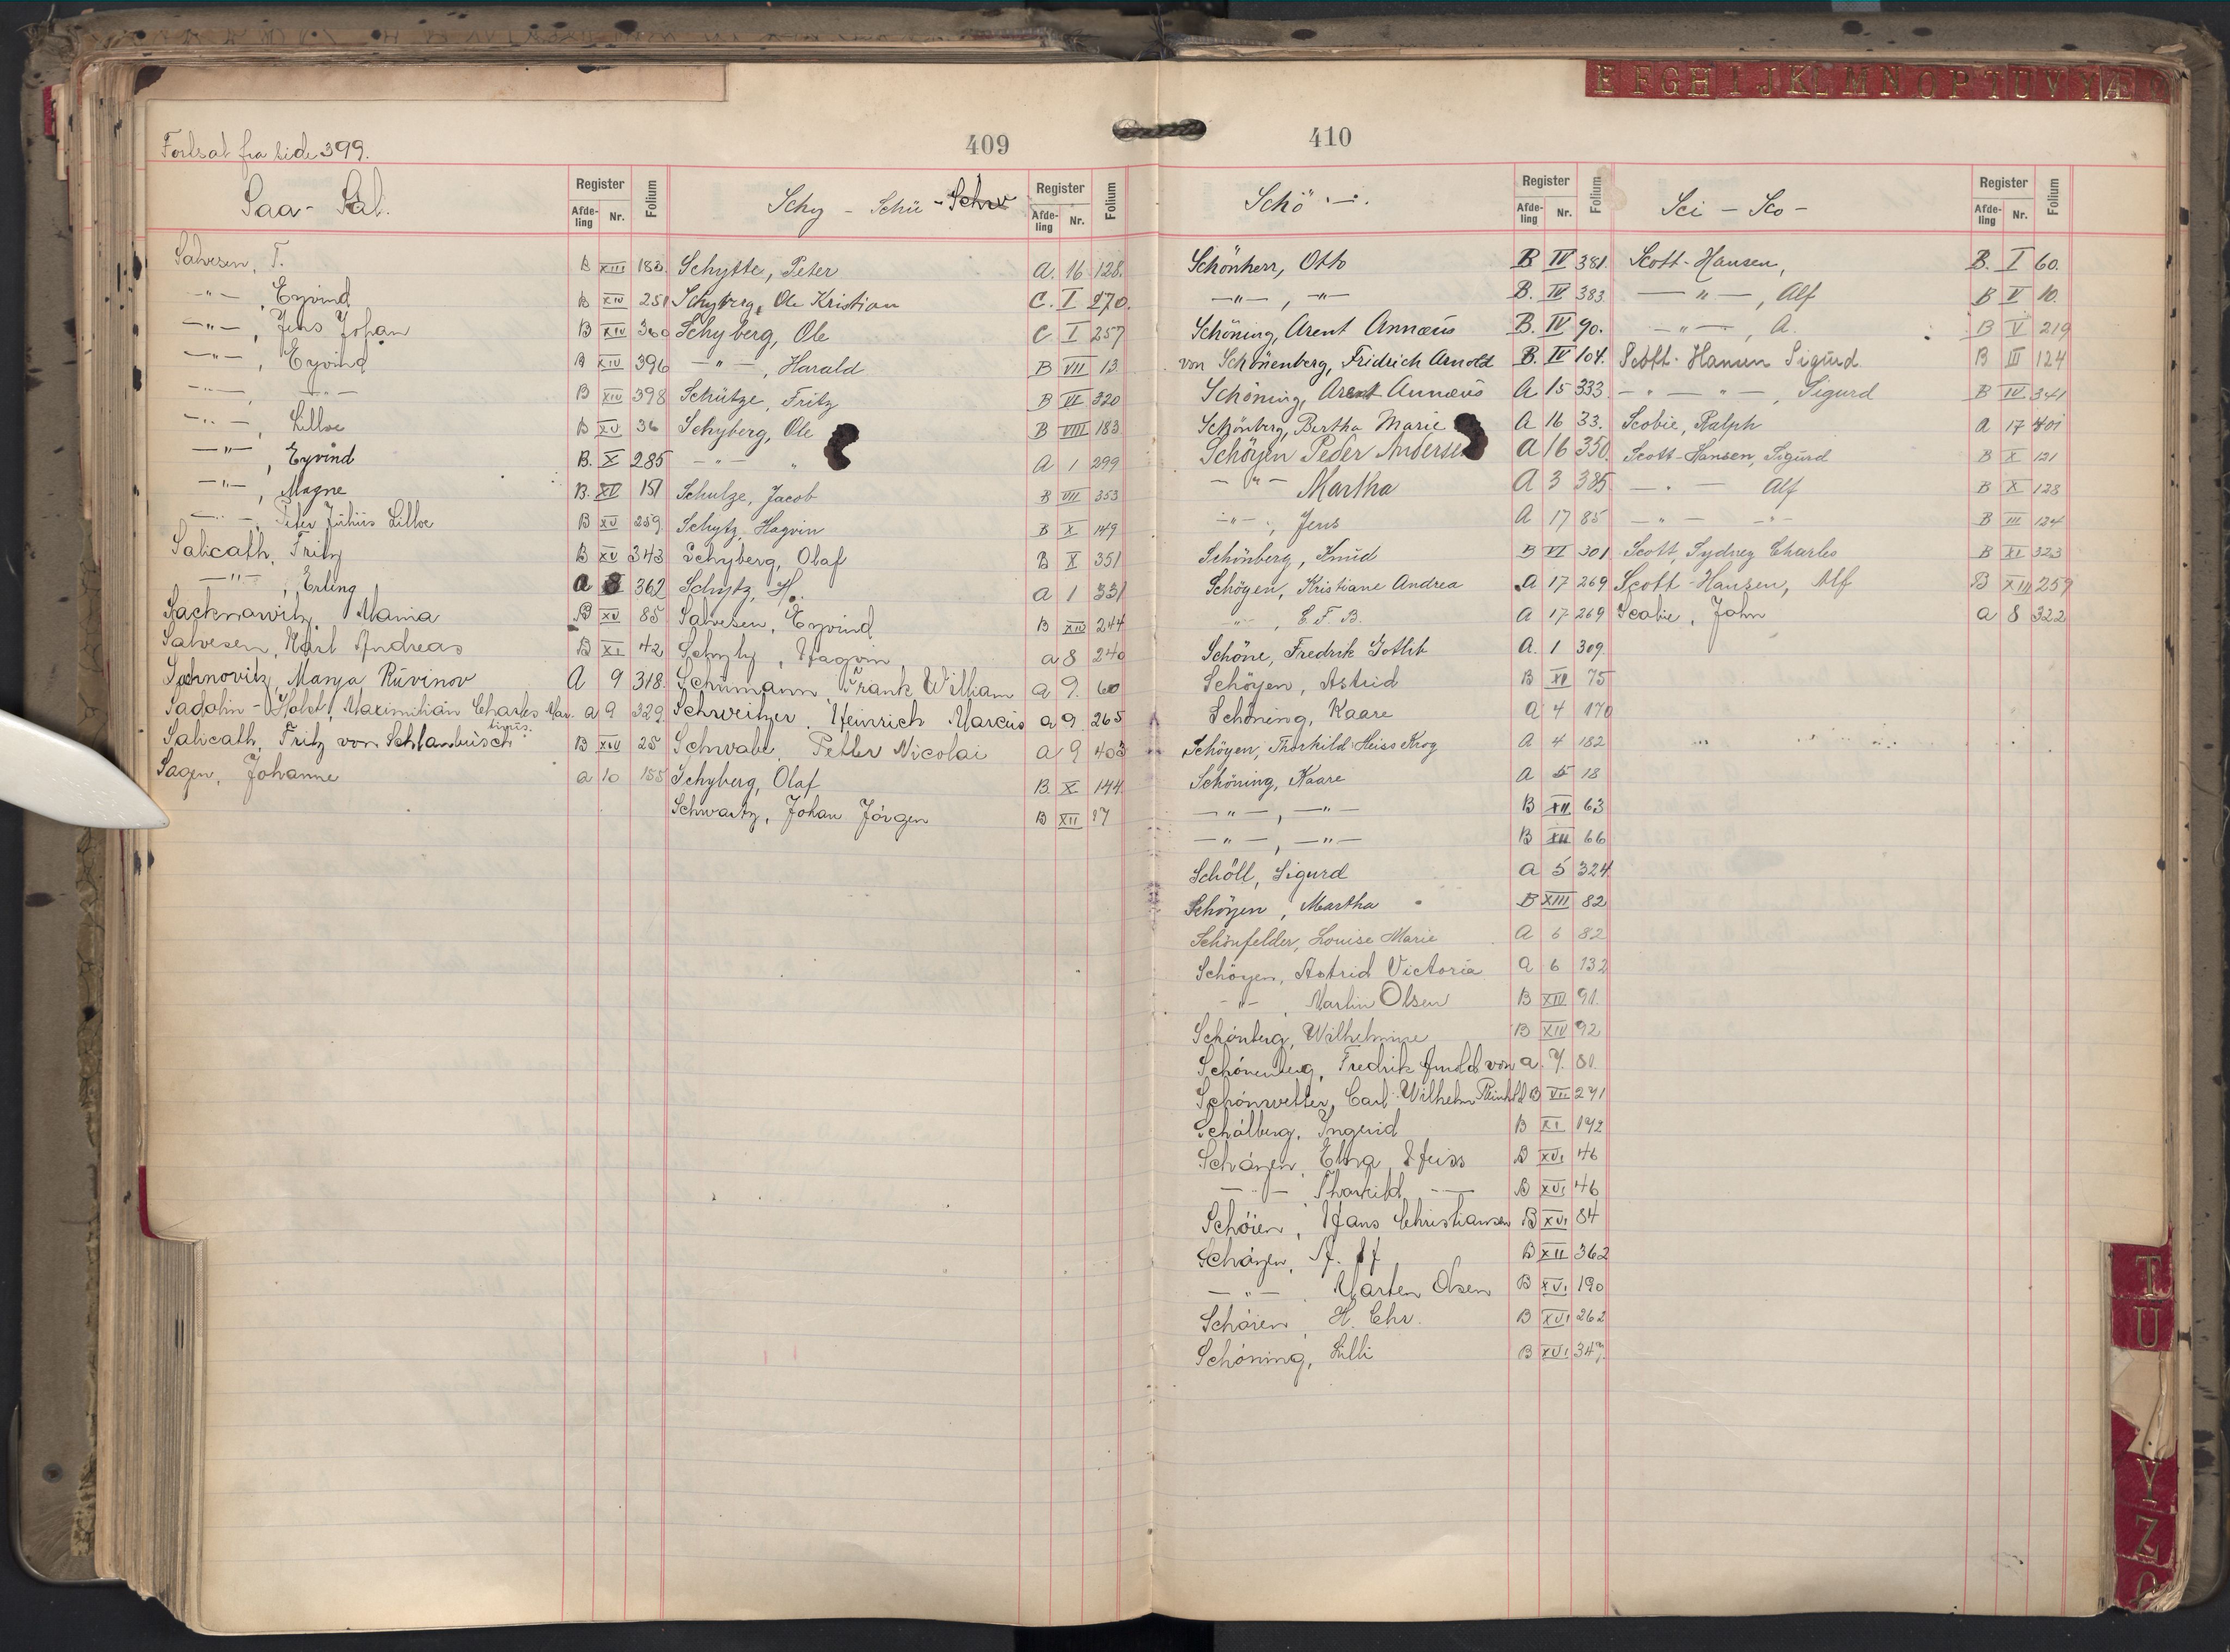 E F G H I J K L M N O P T U V Y Æ
409
Fortsat fra side 399.
Saa- Sal.
Register
Afde-ling Nr.
Folium
Salvesen, T. B XIII 183.
-"- , Eyvind B XIV 251
-"- , Jens Johan B XIV 360
-"- , Eyvind B XIV 396
-"- , -"- B XIV 398
-"- , Lilloe B XV 36
-"- , Eyvind B. X 285
-"- , Magne B. XV 151
-"- , Peter Julius Lilloe B XV 259
Salicath, Fritz B XV 343
-"- , Erling a 8 362
Sacknawitz, Mania B XV 85
Salvesen, Karl Andreas B XI 42
Sachnovitz, Manja Ruvinov A 9 318.
Sadolin-Holst, Maximilian Charles Mar- a 9 329
tinus.
Salicath, Fritz von Schlanbusch B XIV 25
Sagen, Johanne a 10 155
Schy - Schü - Schw
Register
Afde-ling Nr.
Folium
Schytte, Peter A. 16 128.
Schyberg, Ole Kristian C. I 270.
Schyberg, Ole C I 257
-"- , Harald B VII 13
Schütze, Fritz B VI 320
Schyberg, Ole B VIII 183
-"- " A 1 299
Schulze, Jacob B VII 353
Schytz, Hagvin B X 149
Schyberg, Olaf B X 351
Schytz, H. a 1 331
Salvesen, Eyvind B XIV 244
Schytz, Hagvin a 8 240
Schumann Frank William a 9. 60
Schweitzer, Heinrich Marcus a 9 265
Schwabe, Petter Nicolai a 9 403
Schyberg, Olaf B. X 144
Schwartz, Johan Jörgen B XII 17
410
Schö -.
Register
Afde-ling Nr.
Folium
Schönherr, Otto B IV 381.
-"- , -"- B. IV 383.
Schöning, Arent Annæus B. IV 90.
von Schönenberg, Fridrich Arnold B. IV 104.
Schöning, Arent Annæus A 15 333.
Schönberg, Bertha Marie A 16 33.
Schöyen Peder Andersen A 16 350.
-"- Martha A 3 385
-"- , Jens A 17 85
Schönberg, Knud B VI 301
Schöyen, Kristiane Andrea A 17 269
-"- , E. F. B. A 17 269
Schöne, Fredrik Gotthilf A. 1 309.
Schöyen, Astrid B XI 75
Schöning, Kaare A 4 170
Schöyen, Thorkild Heiss Krog A 4 182
Schöning, Kaare A 5 18
-"- , -"- B XII 63
-"- , -"- B XII 66
Schöll, Sigurd a 5 324.
Schöyen, Martha B XIII 82
Schönfelder, Louise Marie A 6 82
Schöyen, Astrid Victoria A 6 132
-"- , Martin Olsen B XIV 91.
Schönberg, Wilhelmine B XIV 92
Schönenberg, Fredrik Arnold von a. 7. 81.
Schönwetter, Carl Wilhelm Reinhold B VII 271
Schölberg, Ingerid B XI 192
Schöyen, Elna Heiss B XVI 46
-"- Thorkild -"- B XVI 46
Schöien, Hans Christiansen B XVI 84
Schöyen, B XII 362
-"- , Marten Olsen B XVI 190
Schöien, H. Chr. B XVI 262
Schöning, Lilli B XVI 347.
Sci - Sco -
Register
Afde-ling Nr.
Folium
Scott-Hansen, B. I 60.
-"- , Alf B V 10.
-"- , A. B V 219
Scott-Hansen Sigurd B III 124
-"- -"- , Sigurd B IV. 341
Scobie, Ralph A 17 401
Scott-Hansen, Sigurd B X 121
-"- Alf B X 128
-"- -"- B III 124
Scott, Sydney Charles B XI 323
Scott-Hansen, Alf B XIII 259
Scobie, John a 8 322
T
U
Y
Z